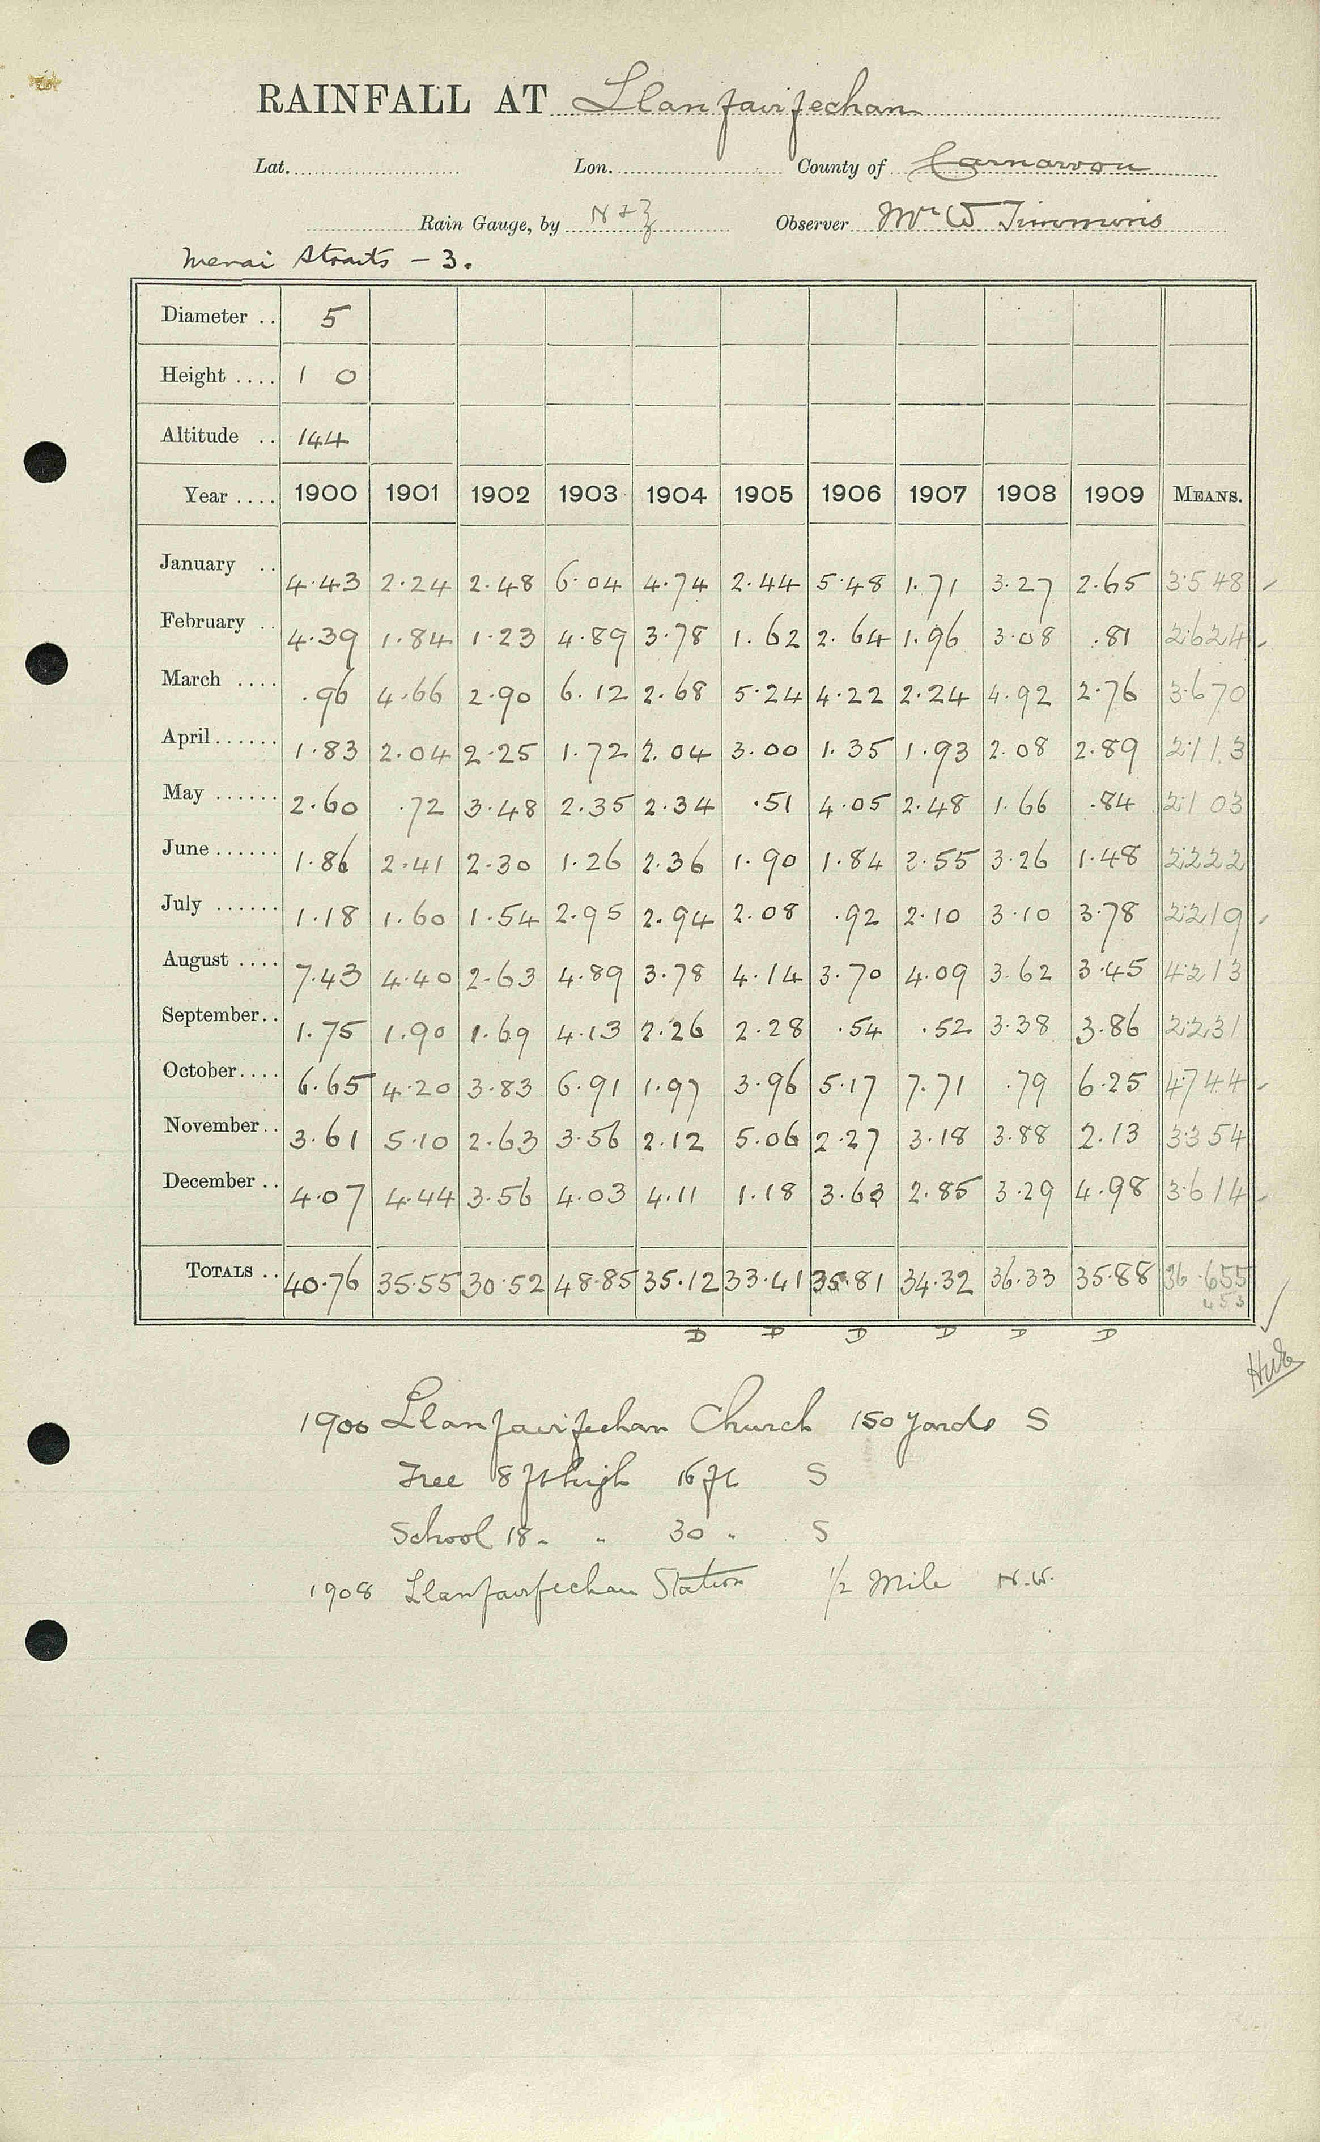 RAINFALL AT Llanfairfechan
Lat. Lon. County of Carnarvon
Rain Gauge, by N & Z Observer Mr W Timmons
Menai Straits - 3.
Diameter .. 5
Height .... 1 0
Altitude .. 144
Year .... 1900 1901 1902 1903 1904 1905 1906 1907 1908 1909 MEANS.
January .. 4.43 2.24 2.48 6.04 4.74 2.44 5.48 1.71 3.27 2.65 3.548
February .. 4.39 1.84 1.23 4.89 3.78 1.62 2.64 1.96 3.08 .81 2.624
March .... .96 4.66 2.90 6.12 2.68 5.24 4.22 2.24 4.92 2.76 3.670
April...... 1.83 2.04 2.25 1.72 2.04 3.00 1.35 1.93 2.08 2.89 2.113
May ...... 2.60 .72 3.48 2.35 2.34 .51 4.05 2.48 1.66 .84 2.103
June ...... 1.86 2.41 2.30 1.26 2.36 1.90 1.84 3.55 3.26 1.48 2.222
July ...... 1.18 1.60 1.54 2.95 2.94 2.08 .92 2.10 3.10 3.78 2.219
August .... 7.43 4.40 2.63 4.89 3.78 4.14 3.70 4.09 3.62 3.45 4.213
September.. 1.75 1.90 1.69 4.13 2.26 2.28 .54 .52 3.38 3.86 2.231
October.... 6.65 4.20 3.83 6.91 1.97 3.96 5.17 7.71 .79 6.25 4.744
November.. 3.61 5.10 2.63 3.56 2.12 5.06 2.27 3.18 3.88 2.13 3.354
December .. 4.07 4.44 3.56 4.03 4.11 1.18 3.63 2.85 3.29 4.98 3.614
TOTALS .. 40.76 35.55 30.52 48.85 35.12 33.41 35.81 34.32 36.33 35.88 36.655
D D D D D D
1900 Llanfairfechan Church 150 yards S
Tree 8 ft high 16 ft S
School 18 " " 30 " S
1908 Llanfairfechan Station 1/2 Mile N.W.